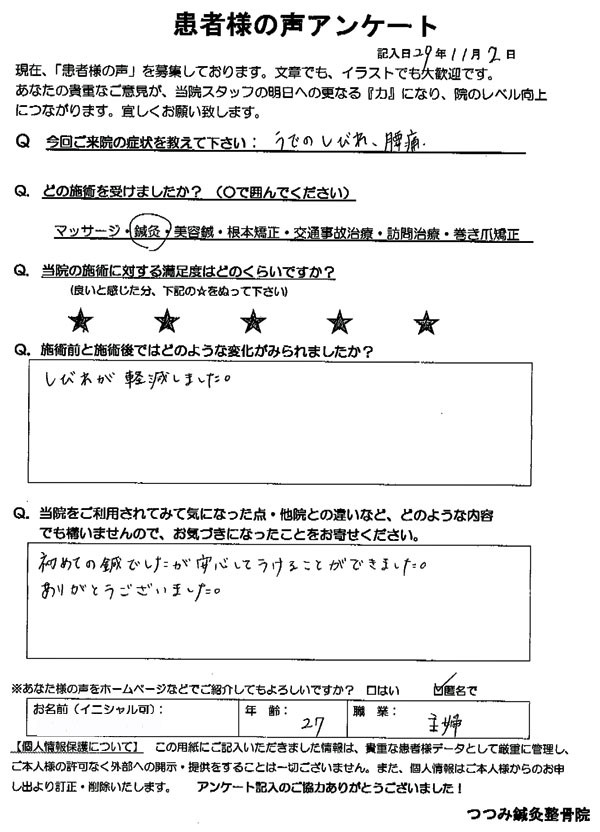 患者様の声アンケート
記入日29年11月2日
現在、「患者様の声」を募集しております。文章でも、イラストでも大歓迎です。
あなたの貴重なご意見が、当院スタッフの明日への更なる『力』になり、院のレベル向上
につながります。宜しくお願い致します。
Q 今回ご来院の症状を教えて下さい： うでのしびれ、腰痛.
Q. どの施術を受けましたか？（〇で囲んでください）
マッサージ・鍼灸・美容鍼・根本矯正・交通事故治療・訪問治療・巻き爪矯正
Q. 当院の施術に対する満足度はどのくらいですか？
（良いと感じた分、下記の☆をぬって下さい）
★ ★ ★ ★ ★
Q. 施術前と施術後ではどのような変化がみられましたか？
しびれが軽減しました。
Q. 当院をご利用されてみて気になった点・他院との違いなど、どのような内容
でも構いませんので、お気づきになったことをお寄せください。
初めての鍼でしたが安心してうけることができました。
ありがとうございました。
※あなた様の声をホームページなどでご紹介してもよろしいですか？ □はい ☑匿名で
お名前（イニシャル可）： 年 齢： 27 職 業： 主婦
【個人情報保護について】 この用紙にご記入いただきました情報は、貴重な患者様データとして厳重に管理し、
ご本人様の許可なく外部への開示・提供をすることは一切ございません。また、個人情報はご本人様からのお申
し出より訂正・削除いたします。 アンケート記入のご協力ありがとうございました！
つつみ鍼灸整骨院